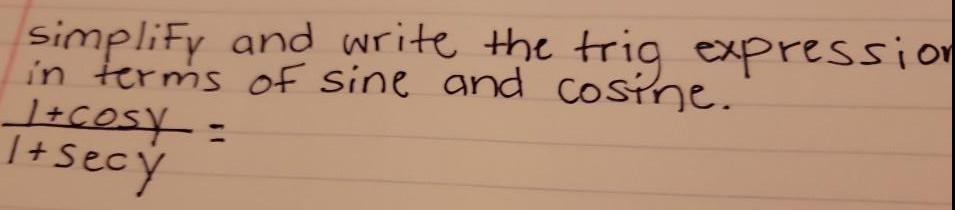 simplify and write the trig expression
in terms of sine and cosine.
1+cosy =
1+secy